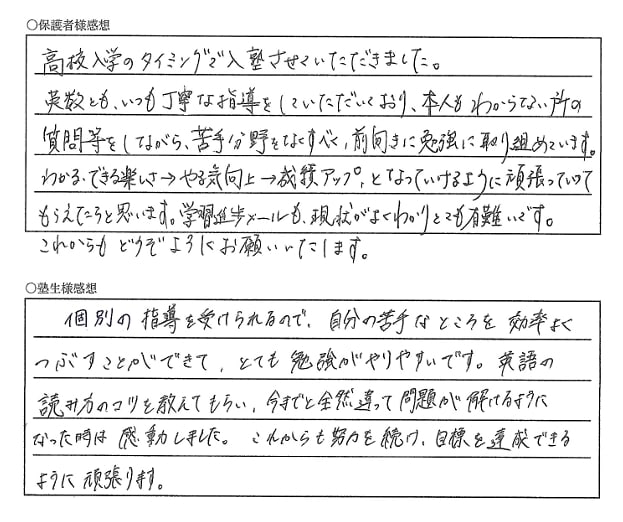 ○保護者様感想
高校入学のタイミングで入塾させていただきました。
英数とも、いつも丁寧な指導をしていただいており、本人もわからない所の
質問等をしながら、苦手分野をなくすべく、前向きに勉強に取り組めています。
わかる・できる楽しさ→やる気向上→成績アップ、となっていけるように頑張っていって
もらえたらと思います。学習進歩メールも、現状がよくわかりとても有難いです。
これからもどうぞよろしくお願いいたします。
○塾生様感想
個別の指導を受けられるので、自分の苦手なところを効率よく
つぶすことができて、とても勉強がやりやすいです。英語の
読み方のコツを教えてもらい、今までと全然違って問題が解けるように
なった時は感動しました。これからも努力を続け、目標を達成できる
ように頑張ります。